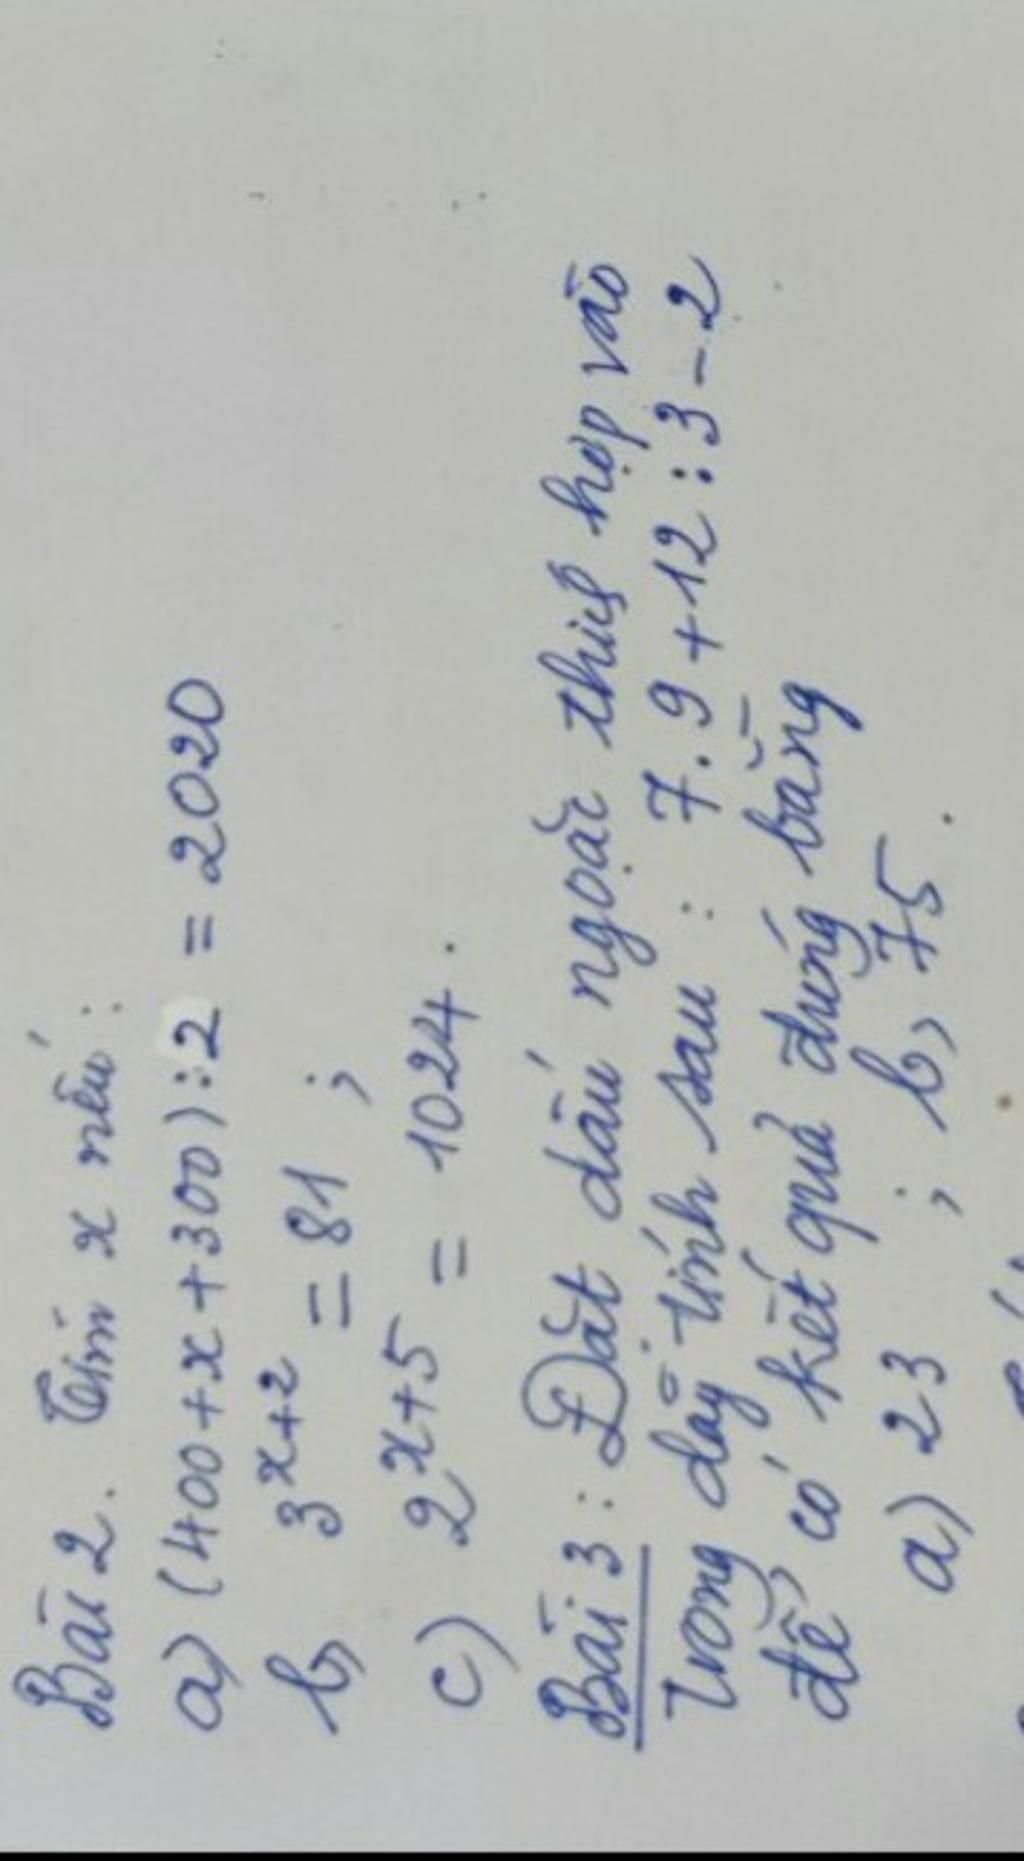 Bài 2. Tìm x nếu:
a) (400+x+300):2 = 2020
b, 3^x+2 = 81 ;
c) 2^x+5 = 1024.
Bài 3: Đặt dấu ngoặc thích hợp vào
trong dãy tính sau: 7.9+12:3-2
để có kết quả đúng bằng
a) 23 ; b, 75.